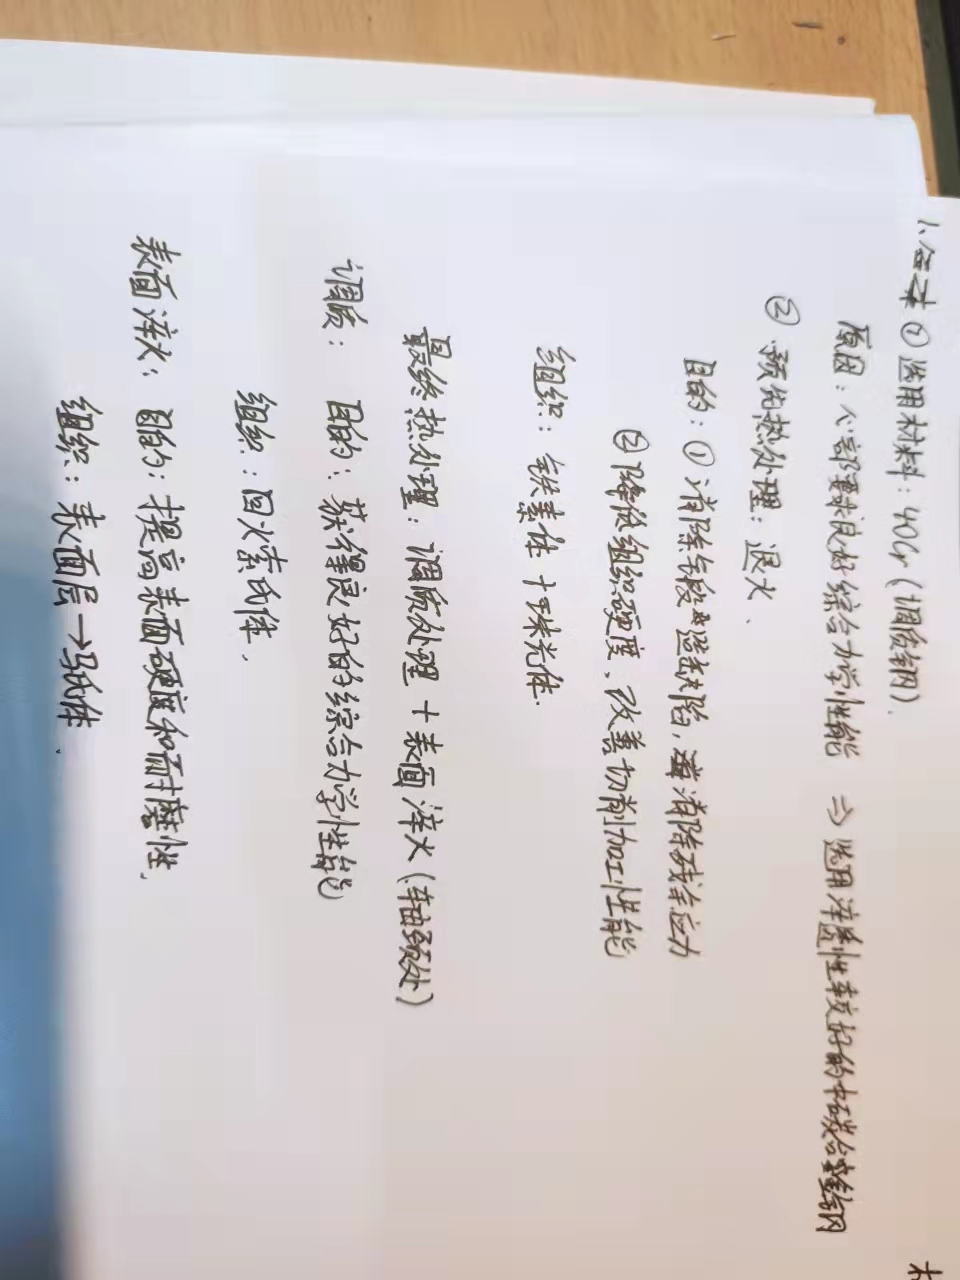 1、
① 选用材料：40Cr（调质钢）.
原因：心部要求良好综合力学性能 ⇒ 选用淬透性较好的中碳合金钢
② 预先热处理：退火.
目的：① 消除锻造缺陷，消除残余应力
② 降低组织硬度、改善切削加工性能
组织：铁素体+珠光体.
最终热处理：调质处理 + 表面淬火（轴颈处）
调质： 目的：获得良好的综合力学性能
组织：回火索氏体.
表面淬火： 目的：提高表面硬度和耐磨性.
组织：表面层→马氏体.